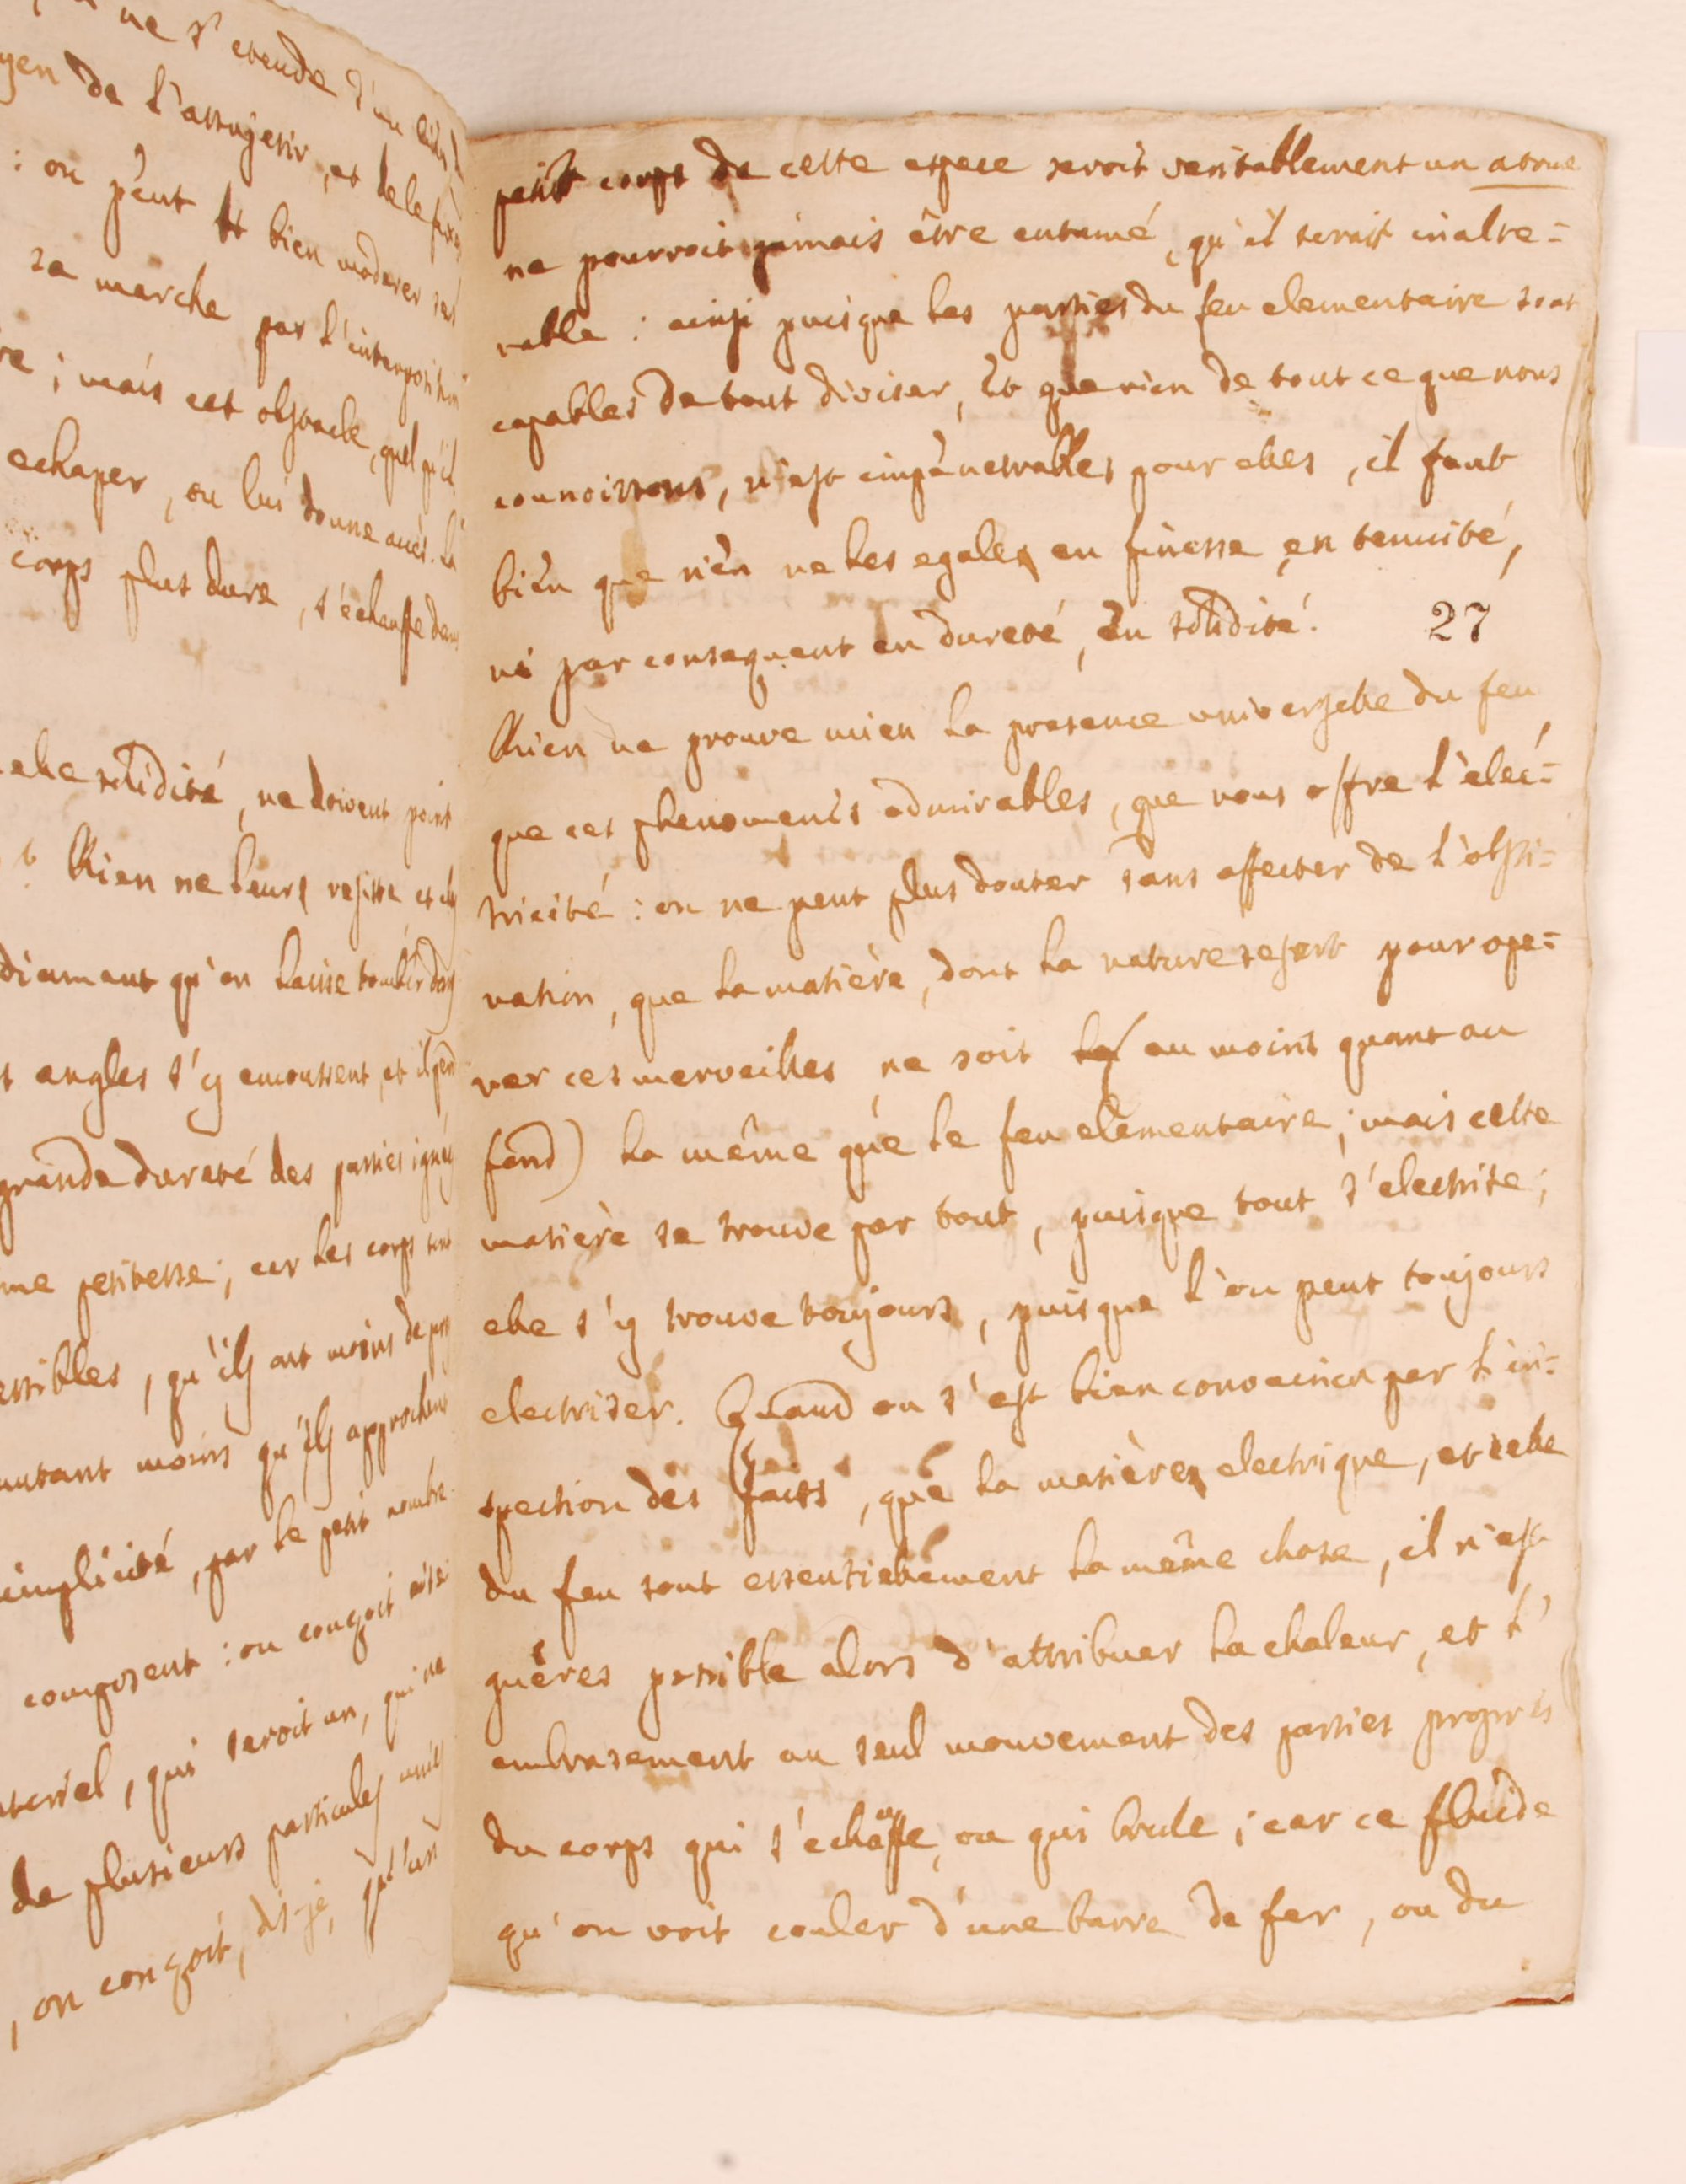 ne s'etende d'un
yen de l'assujetir, et de le fixer
: on peut bien moderer ses
sa marche par l'interposition
re ; mais cet obstacle, quel qu'il
echaper, ou lui donne accès. Le
corps plus dure, s'echauffe dans
elle solidité, ne doivent point
? Rien ne leurs resiste et
diamant qu'on laisse tomber dans
t angles s'y emoussent, et il perd
grande dureté des parties ignées
me petitesse ; car les corps sont
essibles, qu'ils ont moins de por
autant moins qu'ils approchent
simplicité, par le petit nombre
composent : on conçoit aisé
ateriel, qui seroit un, qui ne
de plusieurs particules unies
, on conçoit, dis-je, qu'un
petit corps de cette espece seroit veritablement un atome
ne pourroit jamais être entamé, qu'il seroit inalte=
rable : ainsi puisque les parties du feu elementaire sont
capables de tout diviser, Et que rien de tout ce que nous
connoissons, n'est impénetrables pour elles, il faut
bien que rien ne les egale en finesse, en tenuité,
ni par consequent en dureté, en solidité. 27
Rien ne prouve mieu la presence universelle du feu
que ces phenomenes admirables, que nous offre l'elec=
tricité : on ne peut plus douter sans affecter de l'obsti=
nation, que la matière, dont la nature se sert pour ope=
rer ces merveilles, ne soit (au moins quant au
fond) la même que le feu elementaire ; mais cette
matière se trouve par tout, puisque tout s'electrise ;
elle s'y trouve toujours, puisque l'on peut toujours
electriser. Quand on s'est bien convaincu par l'in=
spection des faits, que la matière electrique, et celle
du feu sont essentiellement la même chose, il n'est
guères possible alors d'attribuer la chaleur, et l'
embrasement au seul mouvement des parties propres
du corps qui s'echauffe, ou qui brule ; car ce fluide
qu'on voit couler d'une barre de fer, ou du